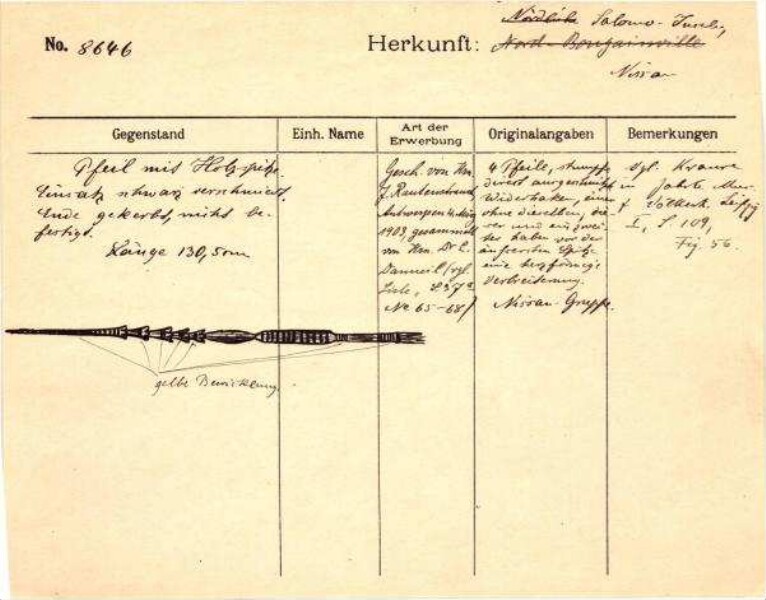 No. 8646
Herkunft: Nördliche Salomo-Inseln,
Nord-Bougainville
Nissan
Gegenstand
Einh. Name
Art der Erwerbung
Originalangaben
Bemerkungen
Pfeil mit Holzspitze.
Einsatz schwarz verschmiert.
Ende gekerbt, nicht be-
festigt.
Länge 130,5 cm
Gesch. von Hrn.
J. Rautenstrauch,
Antwerpen 4. Mai
1903, gesammelt
von Hrn. Dr. E.
Danneil (vgl.
Liste, S 37 a
No 65-68)
4 Pfeile, stumpfe
direct ausgeschnitzte
Widerhaken, einer
ohne dieselben, die-
ser und ein zwei-
ter haben vor der
äussersten Spitze
eine herzförmige
Verbreiterung.
Nissan-Gruppe.
Vgl. Krause
in Jahrb. Mus.
f. Völkerk. Leipzig
I, S. 109,
Fig. 56.
gelbe Bewicklung.